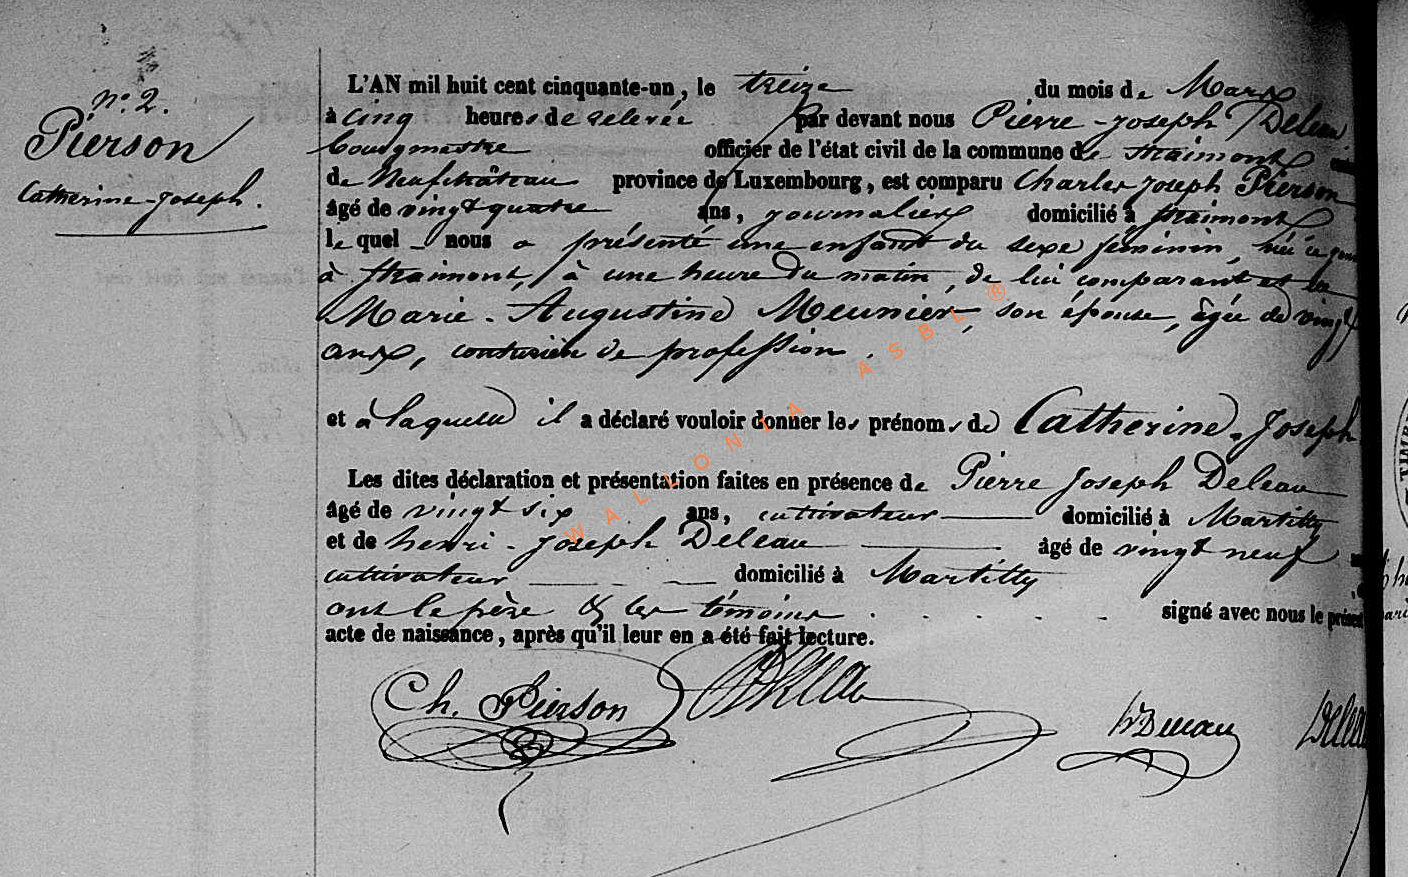 n°. 2.
Pierson
Catherine-Joseph.
L'AN mil huit cent cinquante-un, le treize du mois de Mars
à cinq heures de relevée par devant nous Pierre-Joseph Deleau
bourgmestre officier de l'état civil de la commune de Straimont
de Neufchâteau province de Luxembourg, est comparu Charles Joseph Pierson
âgé de vingt quatre ans, journalier domicilié à Straimont
le quel nous a présenté une enfant du sexe féminin, née ce jour
à Straimont, à une heure du matin, de lui comparant et de
Marie-Augustine Meunier, son épouse, âgée de vingt
ans, couturière de profession.
et à laquelle il a déclaré vouloir donner les prénoms de Catherine-Joseph
Les dites déclaration et présentation faites en présence de Pierre Joseph Deleau
âgé de vingt six ans, cultivateur domicilié à Martilly
et de henri-Joseph Deleau âgé de vingt neuf
cultivateur domicilié à Martilly
ont le père & les témoins signé avec nous le présent
acte de naissance, après qu'il leur en a été fait lecture.
Ch. Pierson
Deleau
WALLONIA ASBL ®
TIMB